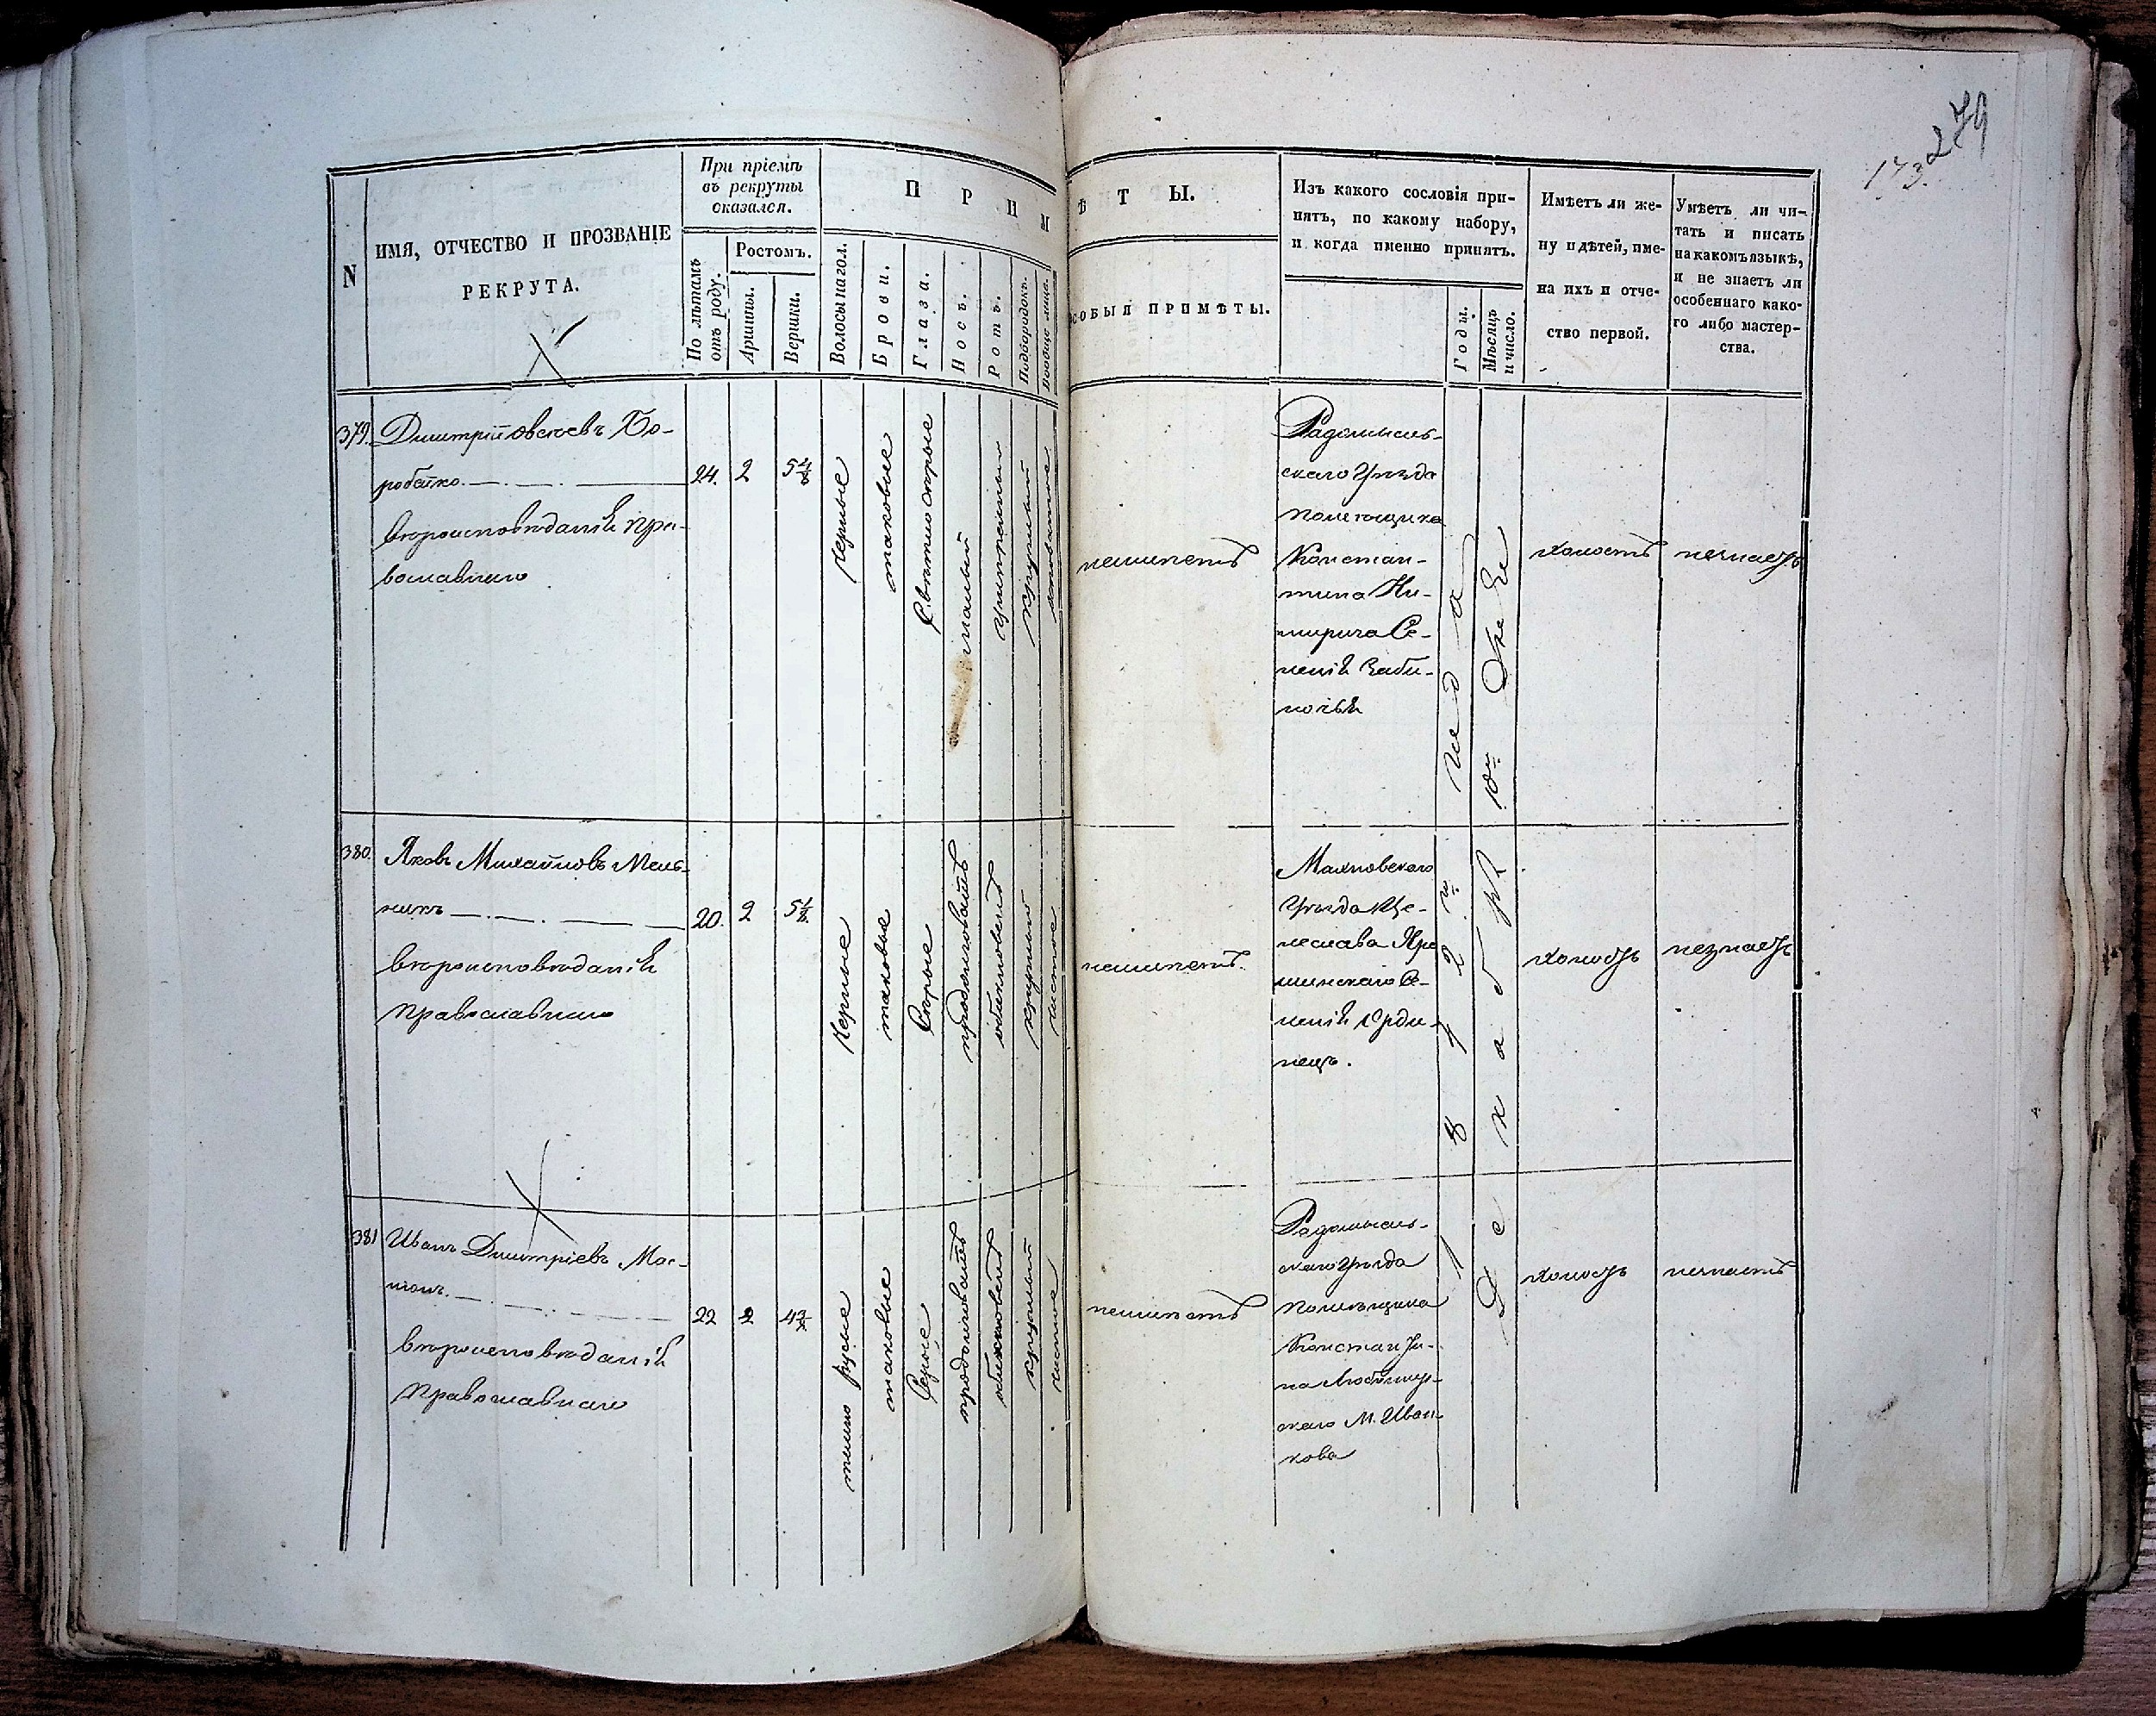 279
173.
N
ИМЯ, ОТЧЕСТВО И ПРОЗВАНІЕ
РЕКРУТА.
При пріемѣ
въ рекруты
оказался.
По лѣтамъ
отъ роду.
Ростомъ.
Аршины.
Вершки.
П Р И М
Волосы на гол.
Брови.
Глаза.
Носъ.
Ротъ.
Подбородокъ.
Вообще лице.
Ѣ Т Ы.
ОСОБЫЯ ПРИМѢТЫ.
Изъ какого сословія при-
нятъ, по какому набору,
и когда именно принятъ.
Годы.
Мѣсяцъ
и число.
Имѣетъ ли же-
ну и дѣтей, име-
на ихъ и отче-
ство первой.
Умѣетъ ли чи-
тать и писать
на какомъ языкѣ,
и не знаетъ ли
особеннаго како-
го либо мастер-
ства.
379.
Дмитрій Бо-
робайко.
вѣроисповѣданія пра-
вославнаго
24.
2
5 4/8
черные
таковые
Свѣтлосѣрые
малый
умѣренный
круглый
неимѣетъ
Радомысль-
скаго Уѣзда
помещика
Констан-
тина Не-
мирича Се-
ленія
холостъ
незнаетъ
380.
Яковъ Михайловъ Мель-
никъ
вѣроисповѣданія
Православнаго
20.
2
5 1/8
Черные
таковые
Сѣрые
продолговатъ
обыкновенъ
круглый
чистое
неимѣетъ.
Махновскаго
Уѣзда
шинскаго Се-
ленія
холостъ
незнаетъ
381
Иванъ Дмитріевъ
вѣроисповѣданія
Православнаго
22
2
темно русые
таковые
Серые
продолговатъ
обыкновенъ
круглый
чистое
неимѣетъ
Радомысль-
скаго Уѣзда
Помѣщика
Константи-
на
скаго М. Иван-
кова
холостъ
незнаетъ
1842 го года
Декабря